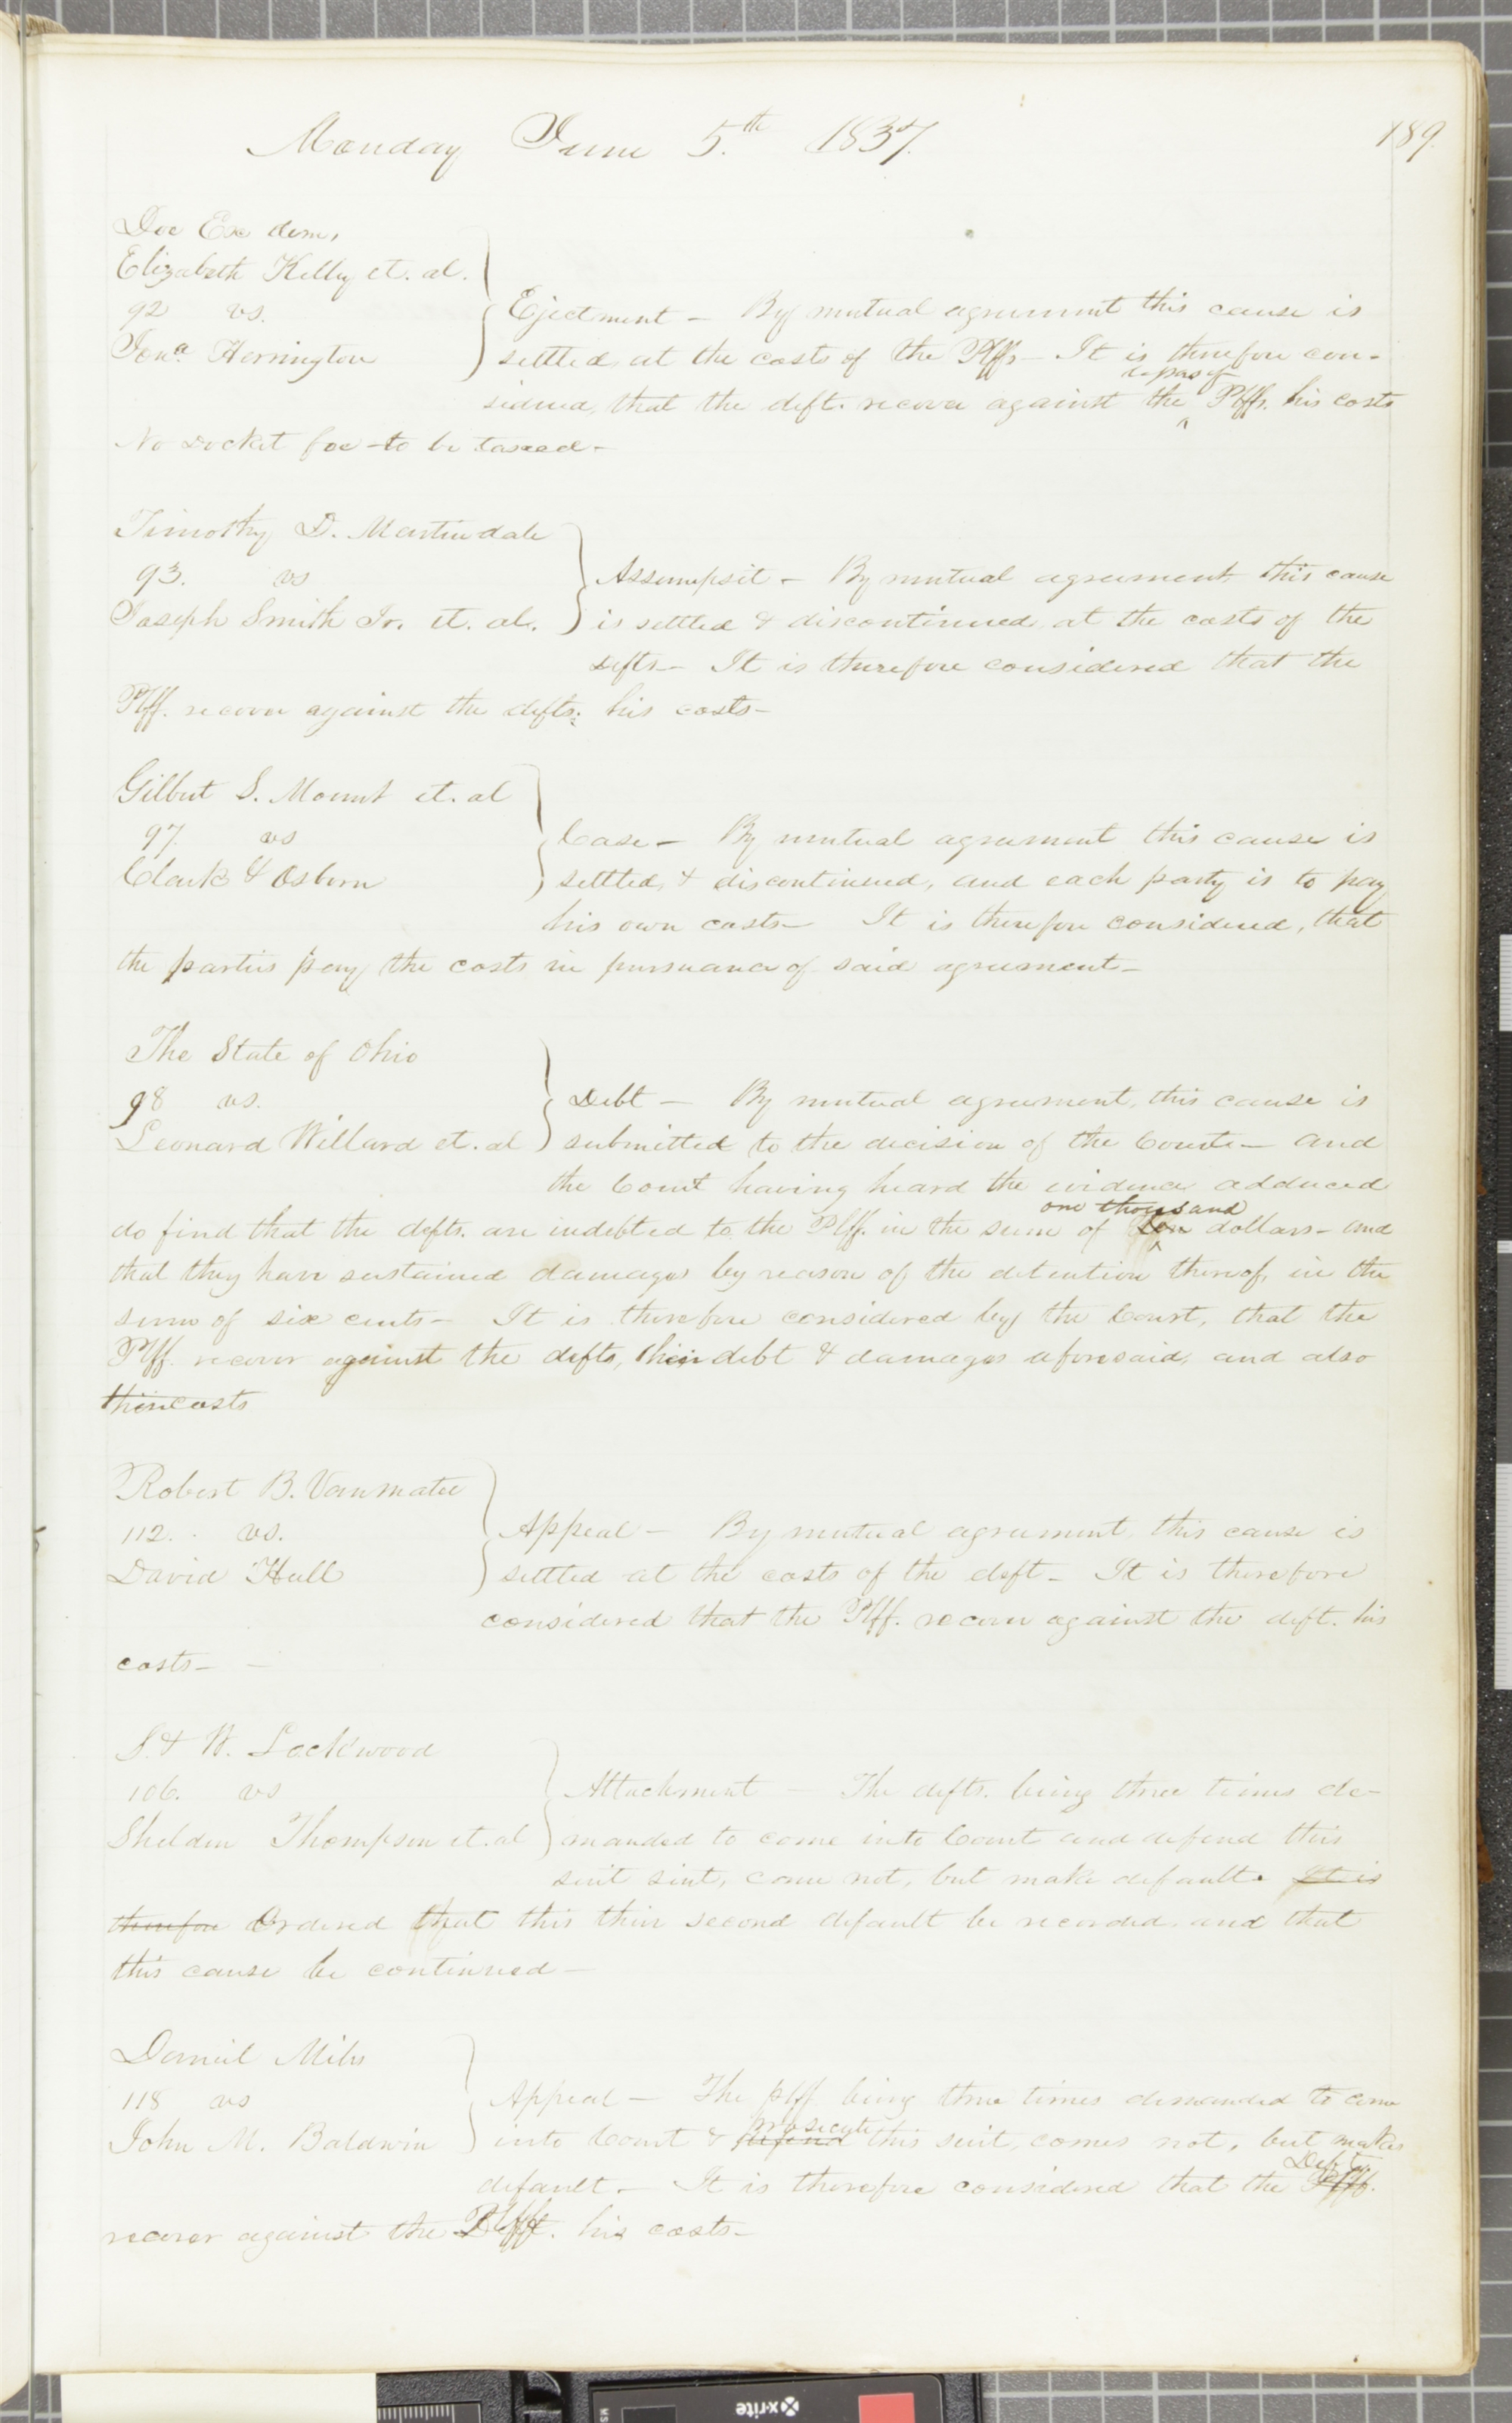 Monday June 5.th 1837.
189.
Doe Ex dem,
Elizabeth Kelly et. al.
92 vs.
Jona. Herrington
Ejectment – By mutual agreement this cause is
settled, at the costs of the Plffs – It is therefore con-
sidered, that the deft. recover against the Plffs. his costs
No docket fee to be taxed –
Timothy D. Martindale
93. vs
Joseph Smith Jr. et. al.
Assumpsit – By mutual agreement this cause
is settled & discontinued, at the costs of the
defts – It is therefore considered that the
Plff. recover against the defts. his costs –
Gilbert S. Mount et. al
97. vs
Clark & Osborn
Case – By mutual agreement this cause is
settled, & discontinued, and each party is to pay
his own costs – It is therefore considered, that
the parties pay the costs in pursuance of said agreement –
The State of Ohio
98 vs.
Leonard Willard et. al
Debt – By mutual agreement, this cause is
submitted to the decision of the Court – and
the Court having heard the evidence adduced
one thousand
do find that the defts. are indebted to the Plff. in the sum of ten dollars – and
that they have sustained damages by reason of the detention thereof, in the
sum of six cents – It is therefore considered by the Court, that the
Plff. recover against the defts, their debt & damages aforesaid, and also
their costs
Robert B. Vanmater
112. vs.
David Hull
Appeal – By mutual agreement, this cause is
settled at the costs of the deft – It is therefore
considered that the Plff. recover against the deft. his
costs –
S. & W. Lockwood
106. vs
Sheldon Thompson et. al
Attachment – The defts. being three times de-
manded to come into Court and defend this
suit sint, come not, but make default. It is
therefore Ordered that this their second default be recorded, and that
this cause be continued –
Daniel Miles
118 vs
John M. Baldwin
Appeal – The plff being three times demanded to come
prosecute
into Court & defend this suit, comes not, but makes
Deft.
default – It is therefore considered that the Plff.
recover against the Plff. his costs –